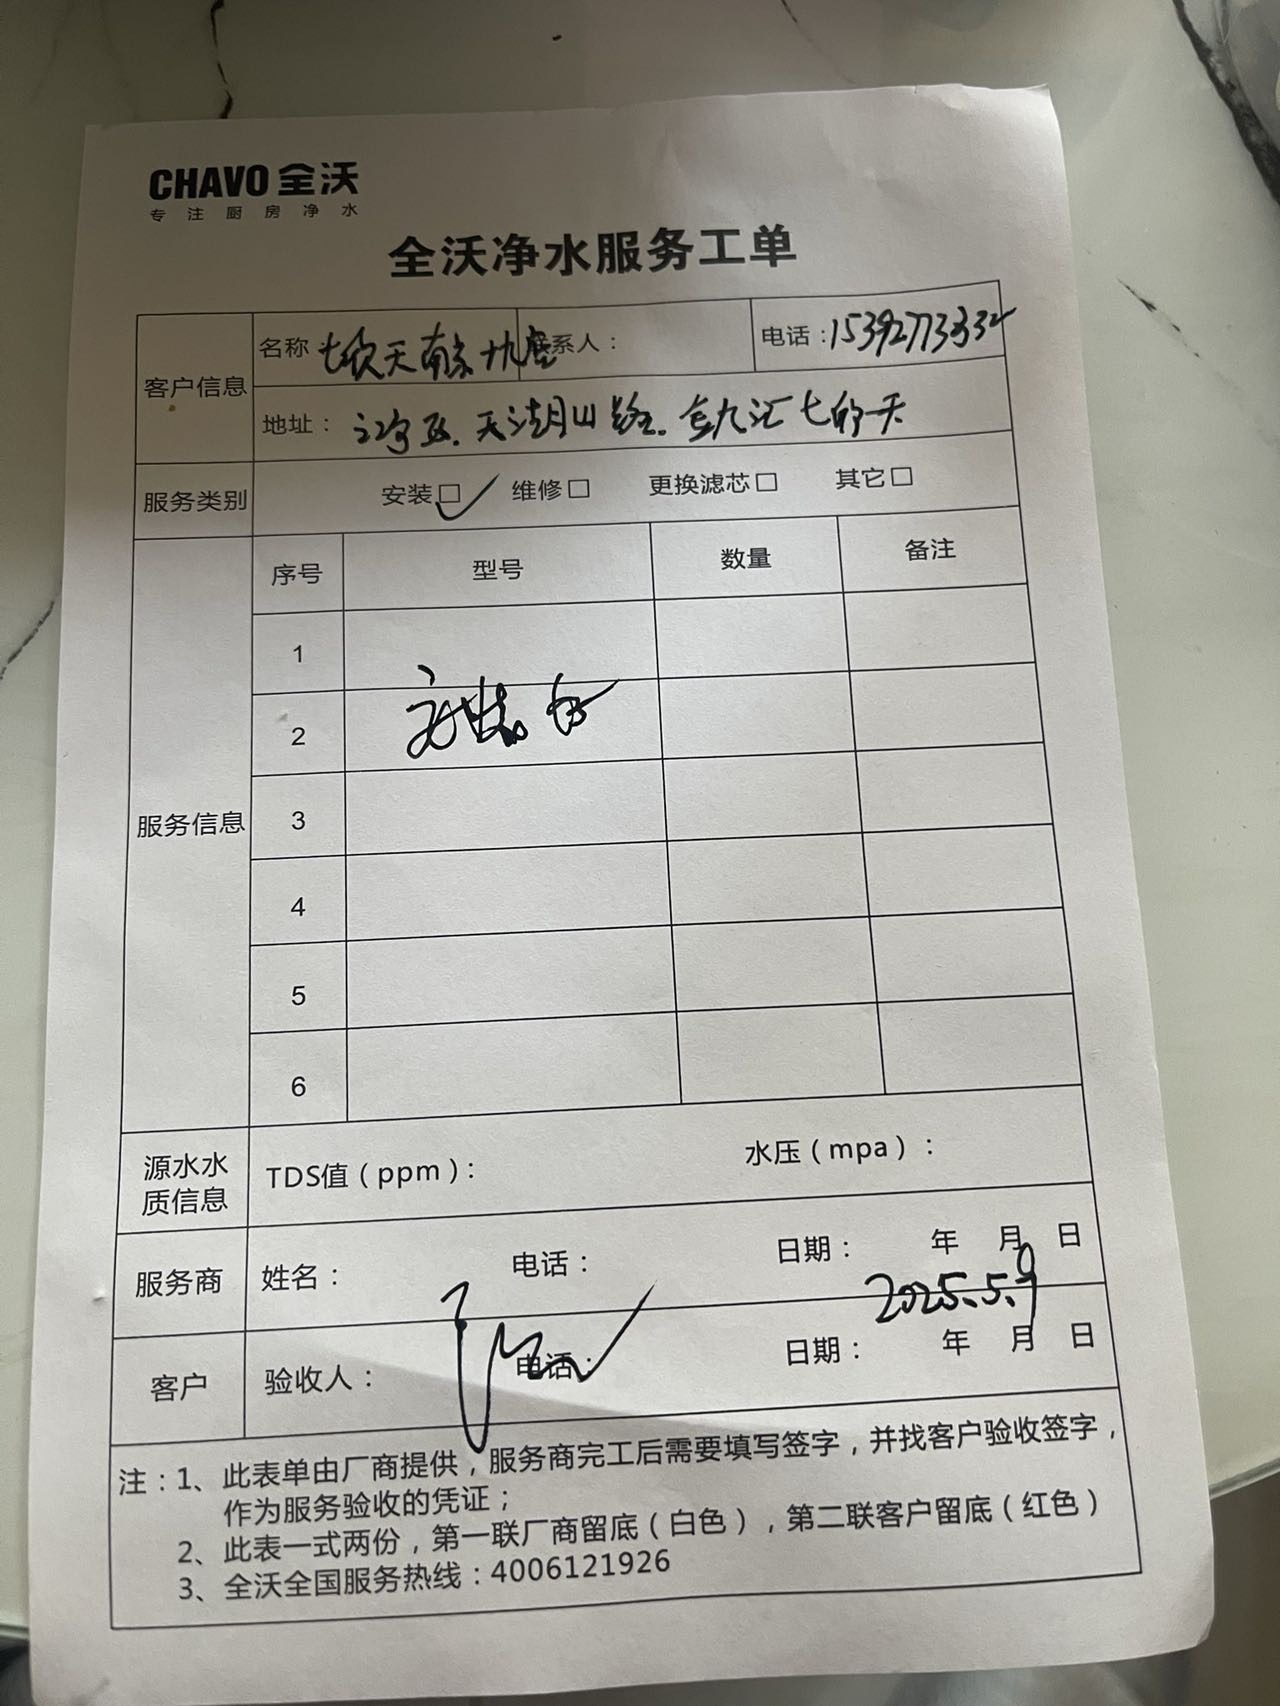 CHAVO 全沃
专注厨房净水
全沃净水服务工单
客户信息
名称 七欣天南京九 联系人：
电话：15392773332
地址： 江宁区.天湖月山路.金九汇七的天
服务类别
安装□✓ 维修□ 更换滤芯□ 其它□
服务信息
序号 型号 数量 备注
1
2 安装
3
4
5
6
源水水质信息
TDS值（ppm）： 水压（mpa）：
服务商 姓名： 电话： 日期： 年 月 日
2025.5.9
客户 验收人： 电话： 日期： 年 月 日
注：1、此表单由厂商提供，服务商完工后需要填写签字，并找客户验收签字，
作为服务验收的凭证；
2、此表一式两份，第一联厂商留底（白色），第二联客户留底（红色）
3、全沃全国服务热线：4006121926